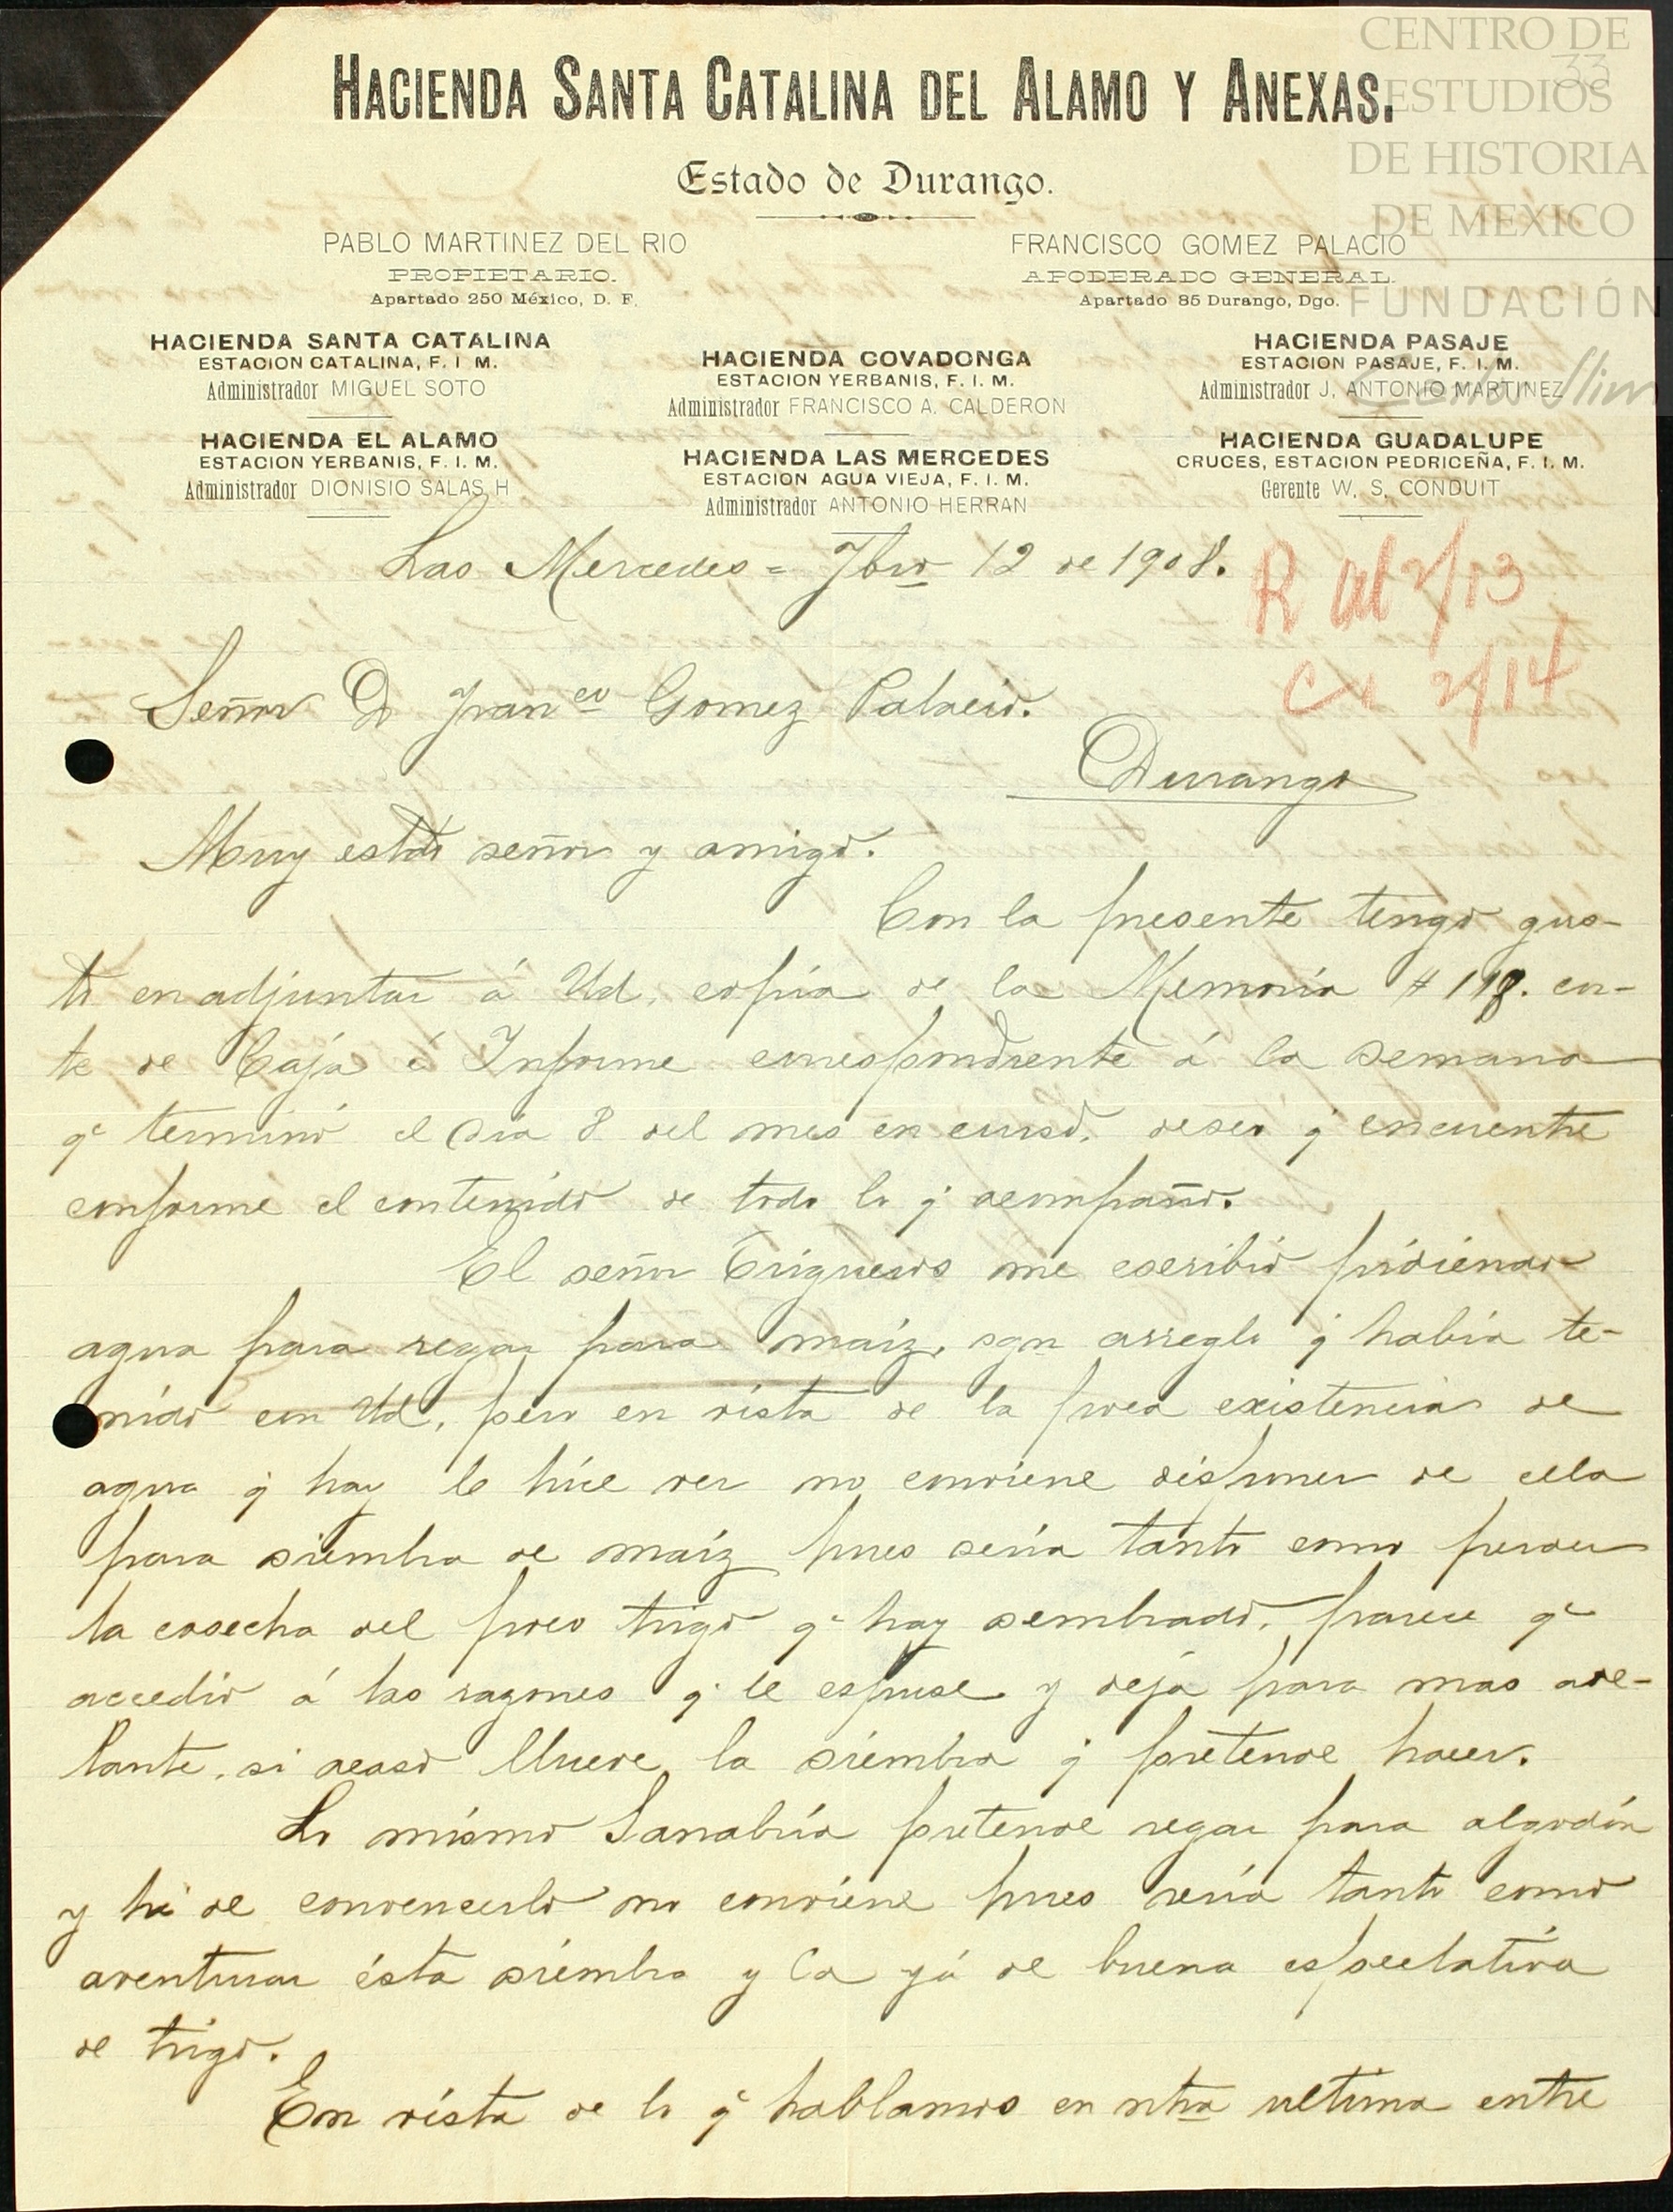 CENTRO DE
33
ESTUDIOS
DE HISTORIA
DE MEXICO
FUNDACIÓN
Carlos Slim
HACIENDA SANTA CATALINA DEL ALAMO Y ANEXAS.
Estado de Durango.
PABLO MARTINEZ DEL RIO
PROPIETARIO.
Apartado 250 México, D. F.
FRANCISCO GOMEZ PALACIO
APODERADO GENERAL
Apartado 85 Durango, Dgo.
HACIENDA SANTA CATALINA
ESTACION CATALINA, F. I M.
Administrador MIGUEL SOTO
HACIENDA COVADONGA
ESTACION YERBANIS, F. I. M.
Administrador FRANCISCO A. CALDERON
HACIENDA PASAJE
ESTACION PASAJE, F. I. M.
Administrador J. ANTONIO MARTINEZ
HACIENDA EL ALAMO
ESTACION YERBANIS, F. I. M.
Administrador DIONISIO SALAS H
HACIENDA LAS MERCEDES
ESTACION AGUA VIEJA, F. I. M.
Administrador ANTONIO HERRAN
HACIENDA GUADALUPE
CRUCES, ESTACION PEDRICEÑA, F. I. M.
Gerente W. S. CONDUIT
Las Mercedes = Fbro 12 de 1908.
R 2/13
2/14
Señor D Franco Gomez Palacio.
Durango
Muy estdo señor y amigo.
Con la presente tengo gus-
to en adjuntar á Ud. copia de la Memoria # 118. cor-
te de Caja é Informe correspondiente á la semana
qe terminó el dia 8 del mes en curso, deseo q' encuentre
conforme el contenido de todo lo q' acompaño.
El señor Trigueros me escribió pidiendo
agua para regar para maíz, sgn arreglo q' había te-
nido con Ud, pero en vista de la poca existencia de
agua q' hay le hice ver no conviene disponer de ella
para siembra de maíz pues sería tanto como perder
la cosecha del poco trigo qe hay sembrado, parece qe
accedió á las razones q' le espuse y deja para mas ade-
lante, si acaso llueve, la siembra q' pretende hacer.
Lo mismo Sanabria pretende regar para algodón
y hé de convencerlo no conviene pues sería tanto como
aventurar ésta siembra y la yá de buena espectativa
de trigo.
En vista de lo q' hablamos en ntra ultima entre